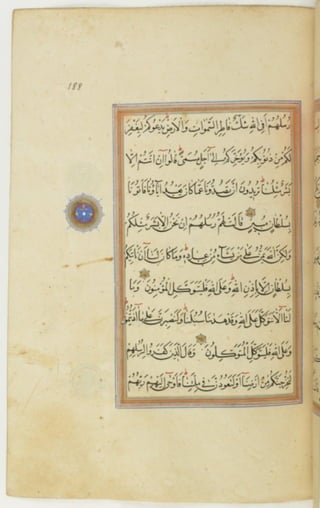 188
رُسُلُهُمْ اَفِي اللهِ شَكٌّ فَاطِرِ السَّمٰوَاتِ وَالْاَرْضِ يَدْعُوكُمْ لِيَغْفِرَ
لَكُمْ مِنْ ذُنُوبِكُمْ وَيُؤَخِّرَكُمْ اِلٰى اَجَلٍ مُسَمًّى قَالُوا اِنْ اَنْتُمْ اِلَّا
بَشَرٌ مِثْلُنَا تُرِيدُونَ اَنْ تَصُدُّونَا عَمَّا كَانَ يَعْبُدُ اٰبَاؤُنَا فَأْتُونَا
بِسُلْطَانٍ مُبِينٍ قَالَتْ لَهُمْ رُسُلُهُمْ اِنْ نَحْنُ اِلَّا بَشَرٌ مِثْلُكُمْ
وَلٰكِنَّ اللهَ يَمُنُّ عَلٰى مَنْ يَشَاءُ مِنْ عِبَادِهِ وَمَا كَانَ لَنَا اَنْ نَأْتِيَكُمْ
بِسُلْطَانٍ اِلَّا بِاِذْنِ اللهِ وَعَلَى اللهِ فَلْيَتَوَكَّلِ الْمُؤْمِنُونَ وَمَا
لَنَا اَلَّا نَتَوَكَّلَ عَلَى اللهِ وَقَدْ هَدٰينَا سُبُلَنَا وَلَنَصْبِرَنَّ عَلٰى مَا اٰذَيْتُمُونَا
وَعَلَى اللهِ فَلْيَتَوَكَّلِ الْمُتَوَكِّلُونَ وَقَالَ الَّذِينَ كَفَرُوا لِرُسُلِهِمْ
لَنُخْرِجَنَّكُمْ مِنْ اَرْضِنَا اَوْ لَتَعُودُنَّ فِي مِلَّتِنَا فَاَوْحٰى اِلَيْهِمْ رَبُّهُمْ